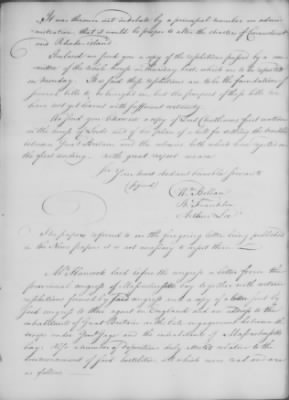 It was thrown out in debate by a principal member in admin
istration that it would be proper to alter the charters of Connecticut
and Rhode island
Inclosed we send you a copy of the resolutions passed by a com
mittee of the whole house on monday last, which are to be reported
on monday. It is said these resolutions are to be the foundation of
several bills to be brought in; but the purport of those bills we
have not yet learnt with sufficient certainty.
We send you likewise a copy of Lord Chatham's first motion
in the house of Lords and of his plan of a bill for settling the troubles
between Great Britain and the colonies both which were rejected on
the first reading. With great respect we are
Sir Your most obedient humble servants
(signed)
Wm Bollan
B. Franklin
Arthur Lee
The papers referred to in the foregoing letter being published
in the News papers it is not necessary to insert them
Mr. Hancock laid before the congress a letter from the
provincial congress of Massachusetts bay together with certain
resolutions formed by said congress and a copy of a letter sent by
said congress to their agent in England and an address to the
inhabitants of Great Britain on the late engagement between the
troops under Genl Gage and the inhabitants of Massachusetts
bay; Also a number of depositions duly attested relative to the
commencement of said hostilities all which were read and are
as follows